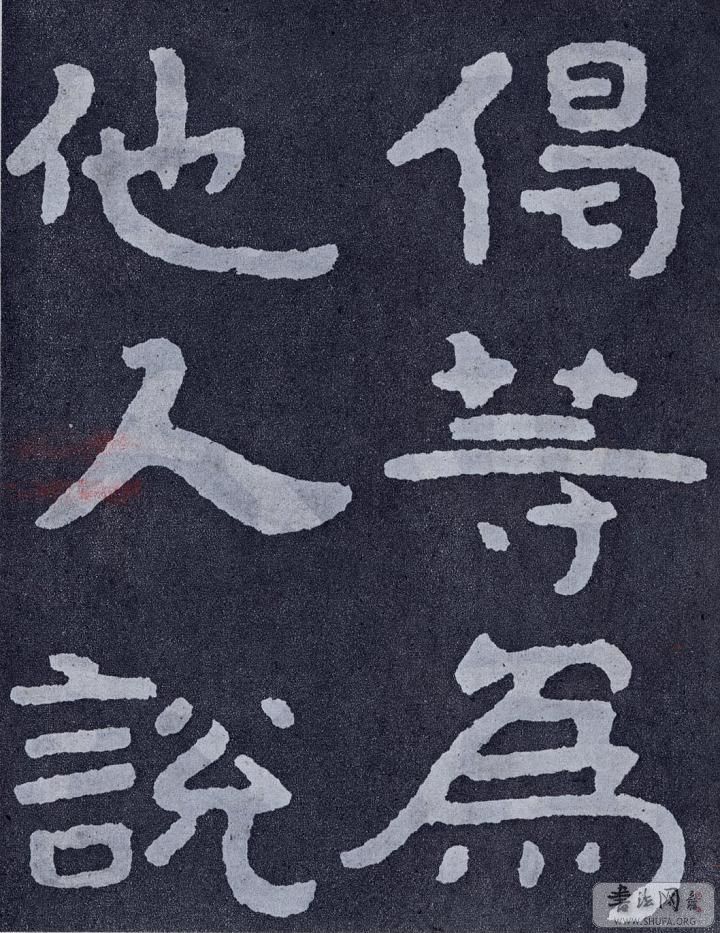 偈等為
他人說
書法网
WWW.SHUFA.ORG